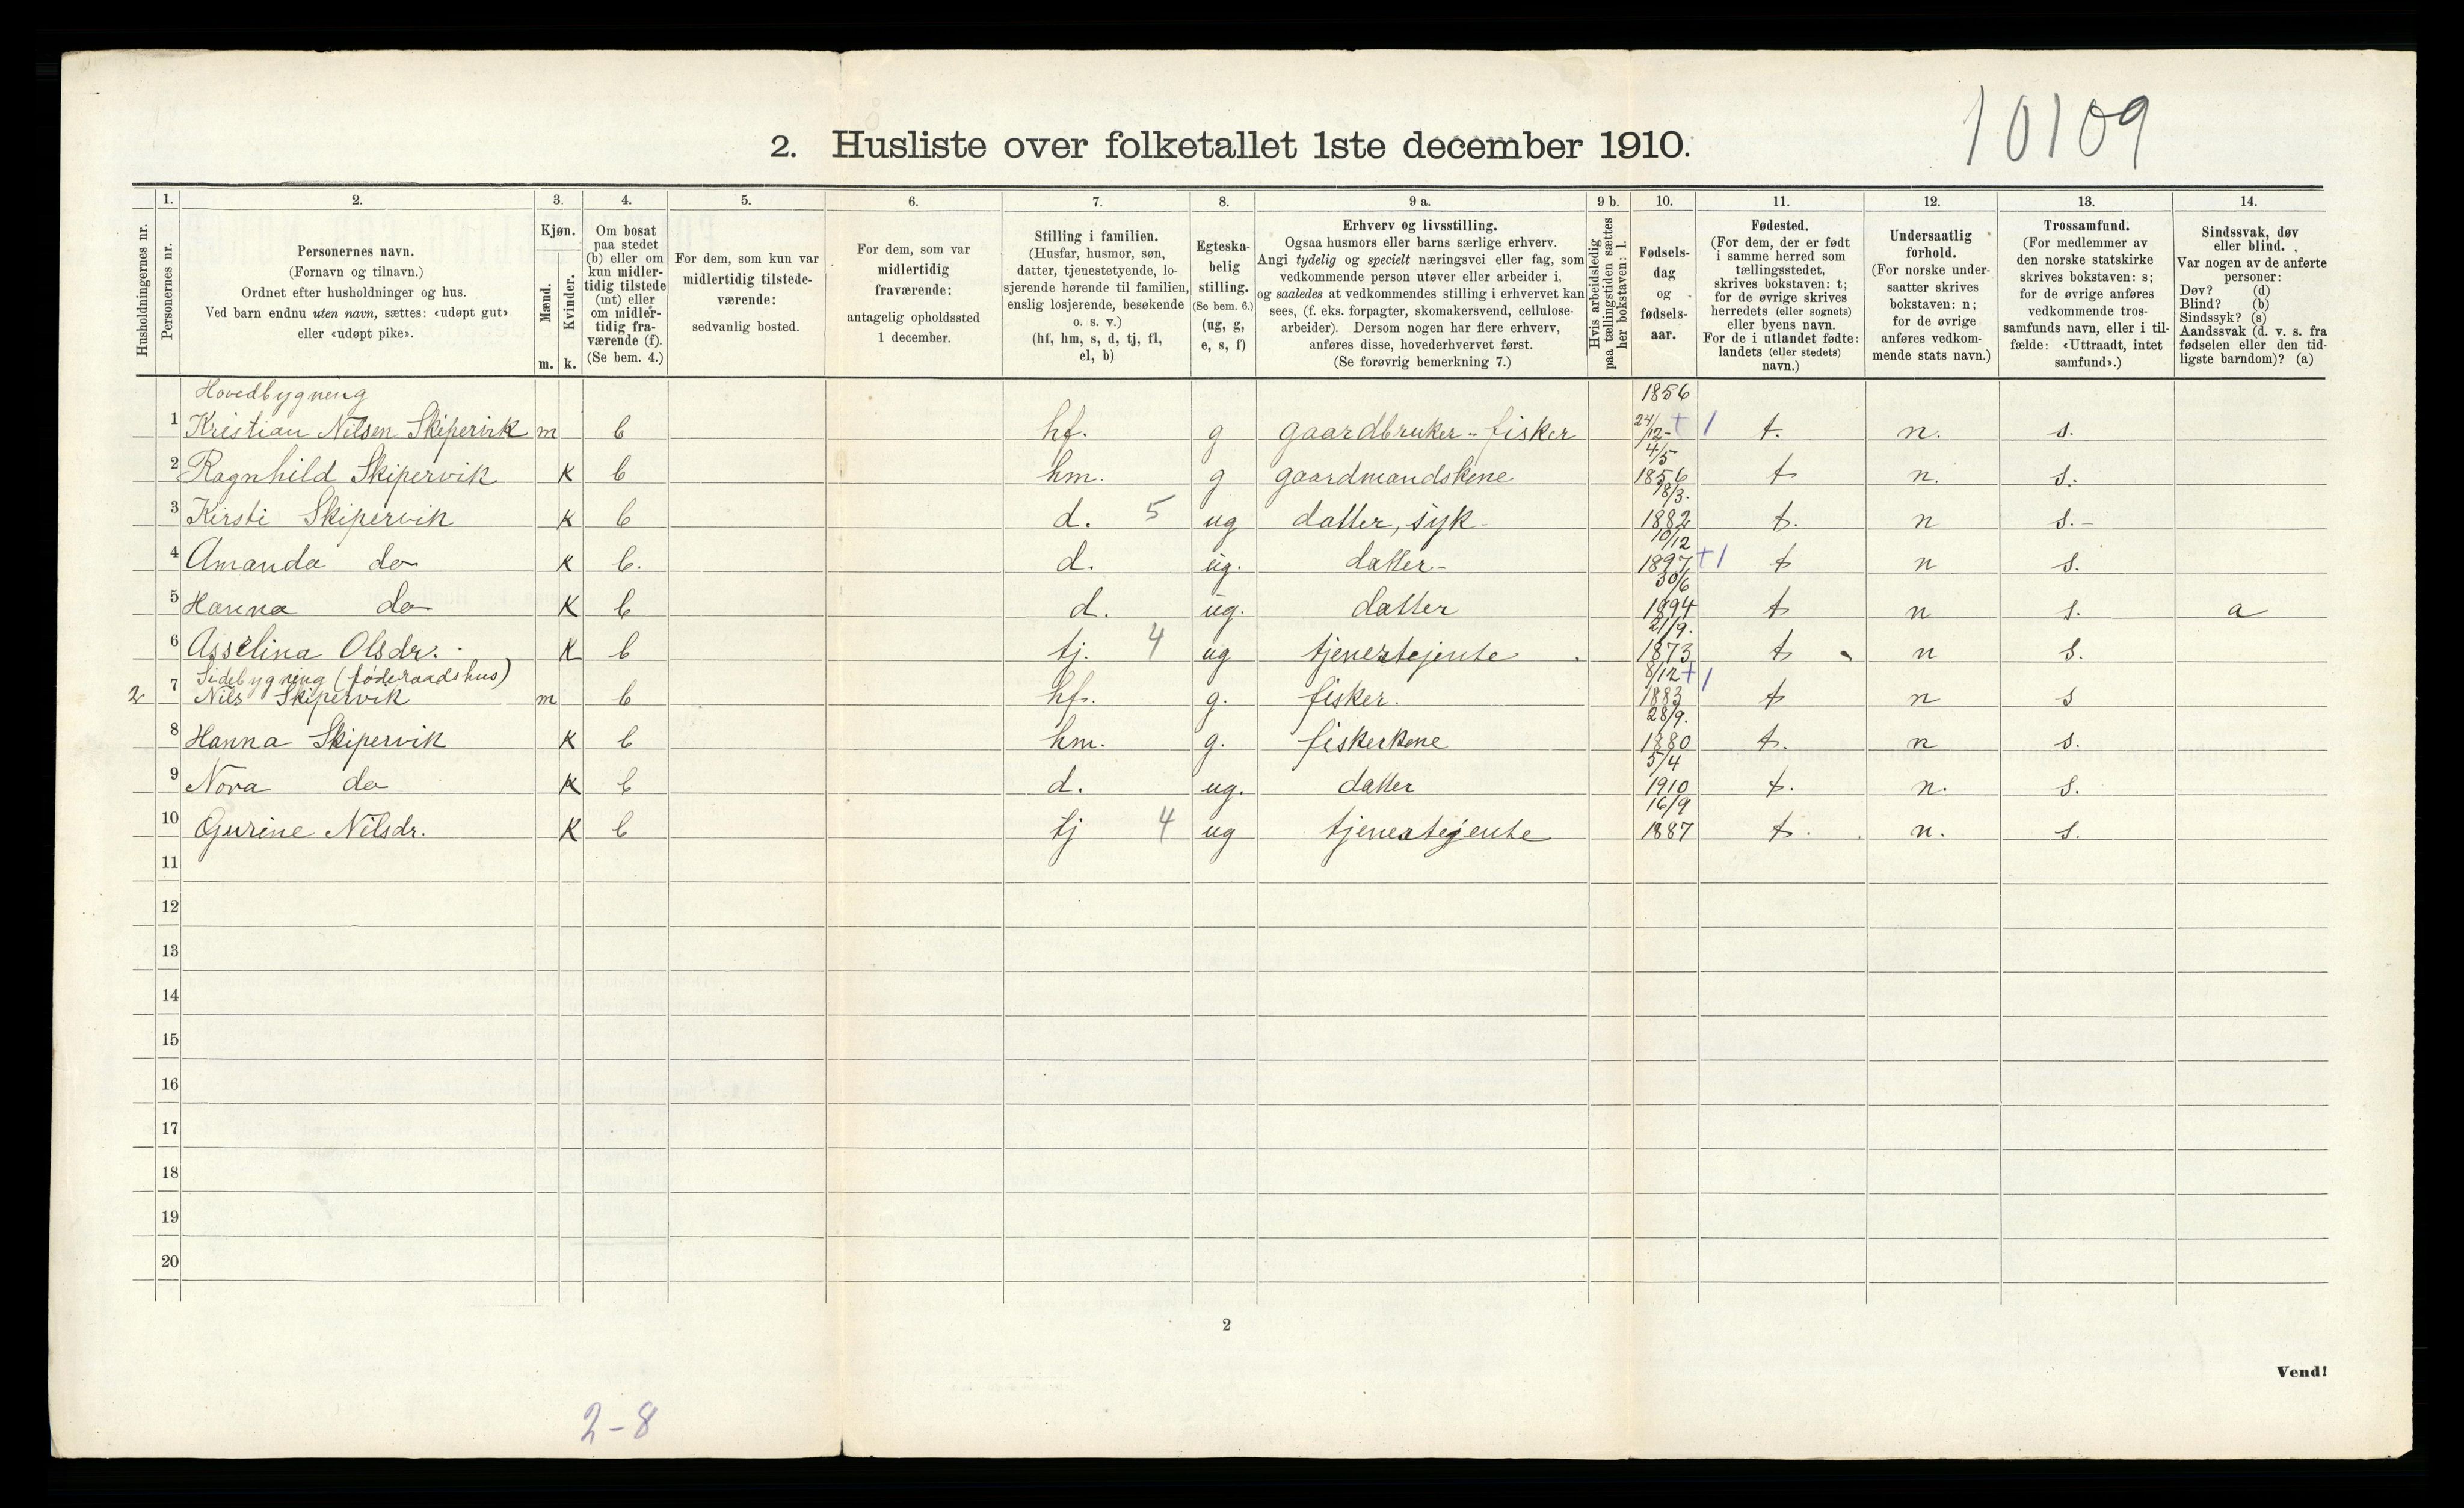 10109
2. Husliste over folketallet 1ste december 1910.
Husholdningernes nr.
1. Personernes nr.
2. Personernes navn.
(Fornavn og tilnavn.)
Ordnet efter husholdninger og hus.
Ved barn endnu uten navn, sættes: «udøpt gut»
eller «udøpt pike».
3. Kjøn.
Mænd. Kvinder.
m. k.
4. Om bosat
paa stedet
(b) eller om
kun midler-
tidig tilstede
(mt) eller
om midler-
tidig fra-
værende (f).
(Se bem. 4.)
5. For dem, som kun var
midlertidig tilstede-
værende:
sedvanlig bosted.
6. For dem, som var
midlertidig
fraværende:
antagelig opholdssted
1 december.
7. Stilling i familien.
(Husfar, husmor, søn,
datter, tjenestetyende, lo-
sjerende hørende til familien,
enslig losjerende, besøkende
o. s. v.)
(hf, hm, s, d, tj, fl,
el, b)
8. Egteska-
belig
stilling.
(Se bem. 6.)
(ug, g,
e, s, f)
9 a. Erhverv og livsstilling.
Ogsaa husmors eller barns særlige erhverv.
Angi tydelig og specielt næringsvei eller fag, som
vedkommende person utøver eller arbeider i,
og saaledes at vedkommendes stilling i erhvervet kan
sees, (f. eks. forpagter, skomakersvend, cellulose-
arbeider). Dersom nogen har flere erhverv,
anføres disse, hovederhvervet først.
(Se forøvrig bemerkning 7.)
9 b. Hvis arbeidsledig
paa tællingstiden sættes
her bokstaven: l.
10. Fødsels-
dag
og
fødsels-
aar.
11. Fødested.
(For dem, der er født
i samme herred som
tællingsstedet,
skrives bokstaven: t;
for de øvrige skrives
herredets (eller sognets)
eller byens navn.
For de i utlandet fødte:
landets (eller stedets)
navn.)
12. Undersaatlig
forhold.
(For norske under-
saatter skrives
bokstaven: n;
for de øvrige
anføres vedkom-
mende stats navn.)
13. Trossamfund.
(For medlemmer av
den norske statskirke
skrives bokstaven: s;
for de øvrige anføres
vedkommende tros-
samfunds navn, eller i til-
fælde: «Uttraadt, intet
samfund».)
14. Sindssvak, døv
eller blind.
Var nogen av de anførte
personer:
Døv? (d)
Blind? (b)
Sindssyk? (s)
Aandssvak (d. v. s. fra
fødselen eller den tid-
ligste barndom)? (a)
Hovedbygneng 1856
1 Kristian Nilsen Skipervik m b hf. g gaardbruker - fisker 24/12- + 1 t. n. s.
2 Ragnhild Skipervik K b hm. g gaardmandskone 4/5 1856 t n. s.-
3 Kirsti Skipervik K b d. 5 ug datter, syk- 18/3. 1882 t. n s.-
4 Amanda do K b. d. ug. datter- 10/12 1897 +1 t n s.
5 Hanna do K b d. ug. datter 30/6 1894 t n s. a
6 Asselina Olsdr. K b tj. 4 ug tjenestejente 21/9. 1873 t n s.
Sidebygneng (føderaadshus)
2 7 Nils Skipervik m b hf. g. fisker. 8/12 1883 +1 t n s
8 Hanna Skipervik K b hm. g. fiskerkone 28/9. 1880 t. n s.
9 Nora do K b d. ug. datter 5/4 1910 t. n. s.
10 Gurine Nilsdr. K b tj 4 ug tjenestejente 16/9 1887 t. n. s.
11
12
13
14
15
16
17
18
19
20
2
Vend!
2-8